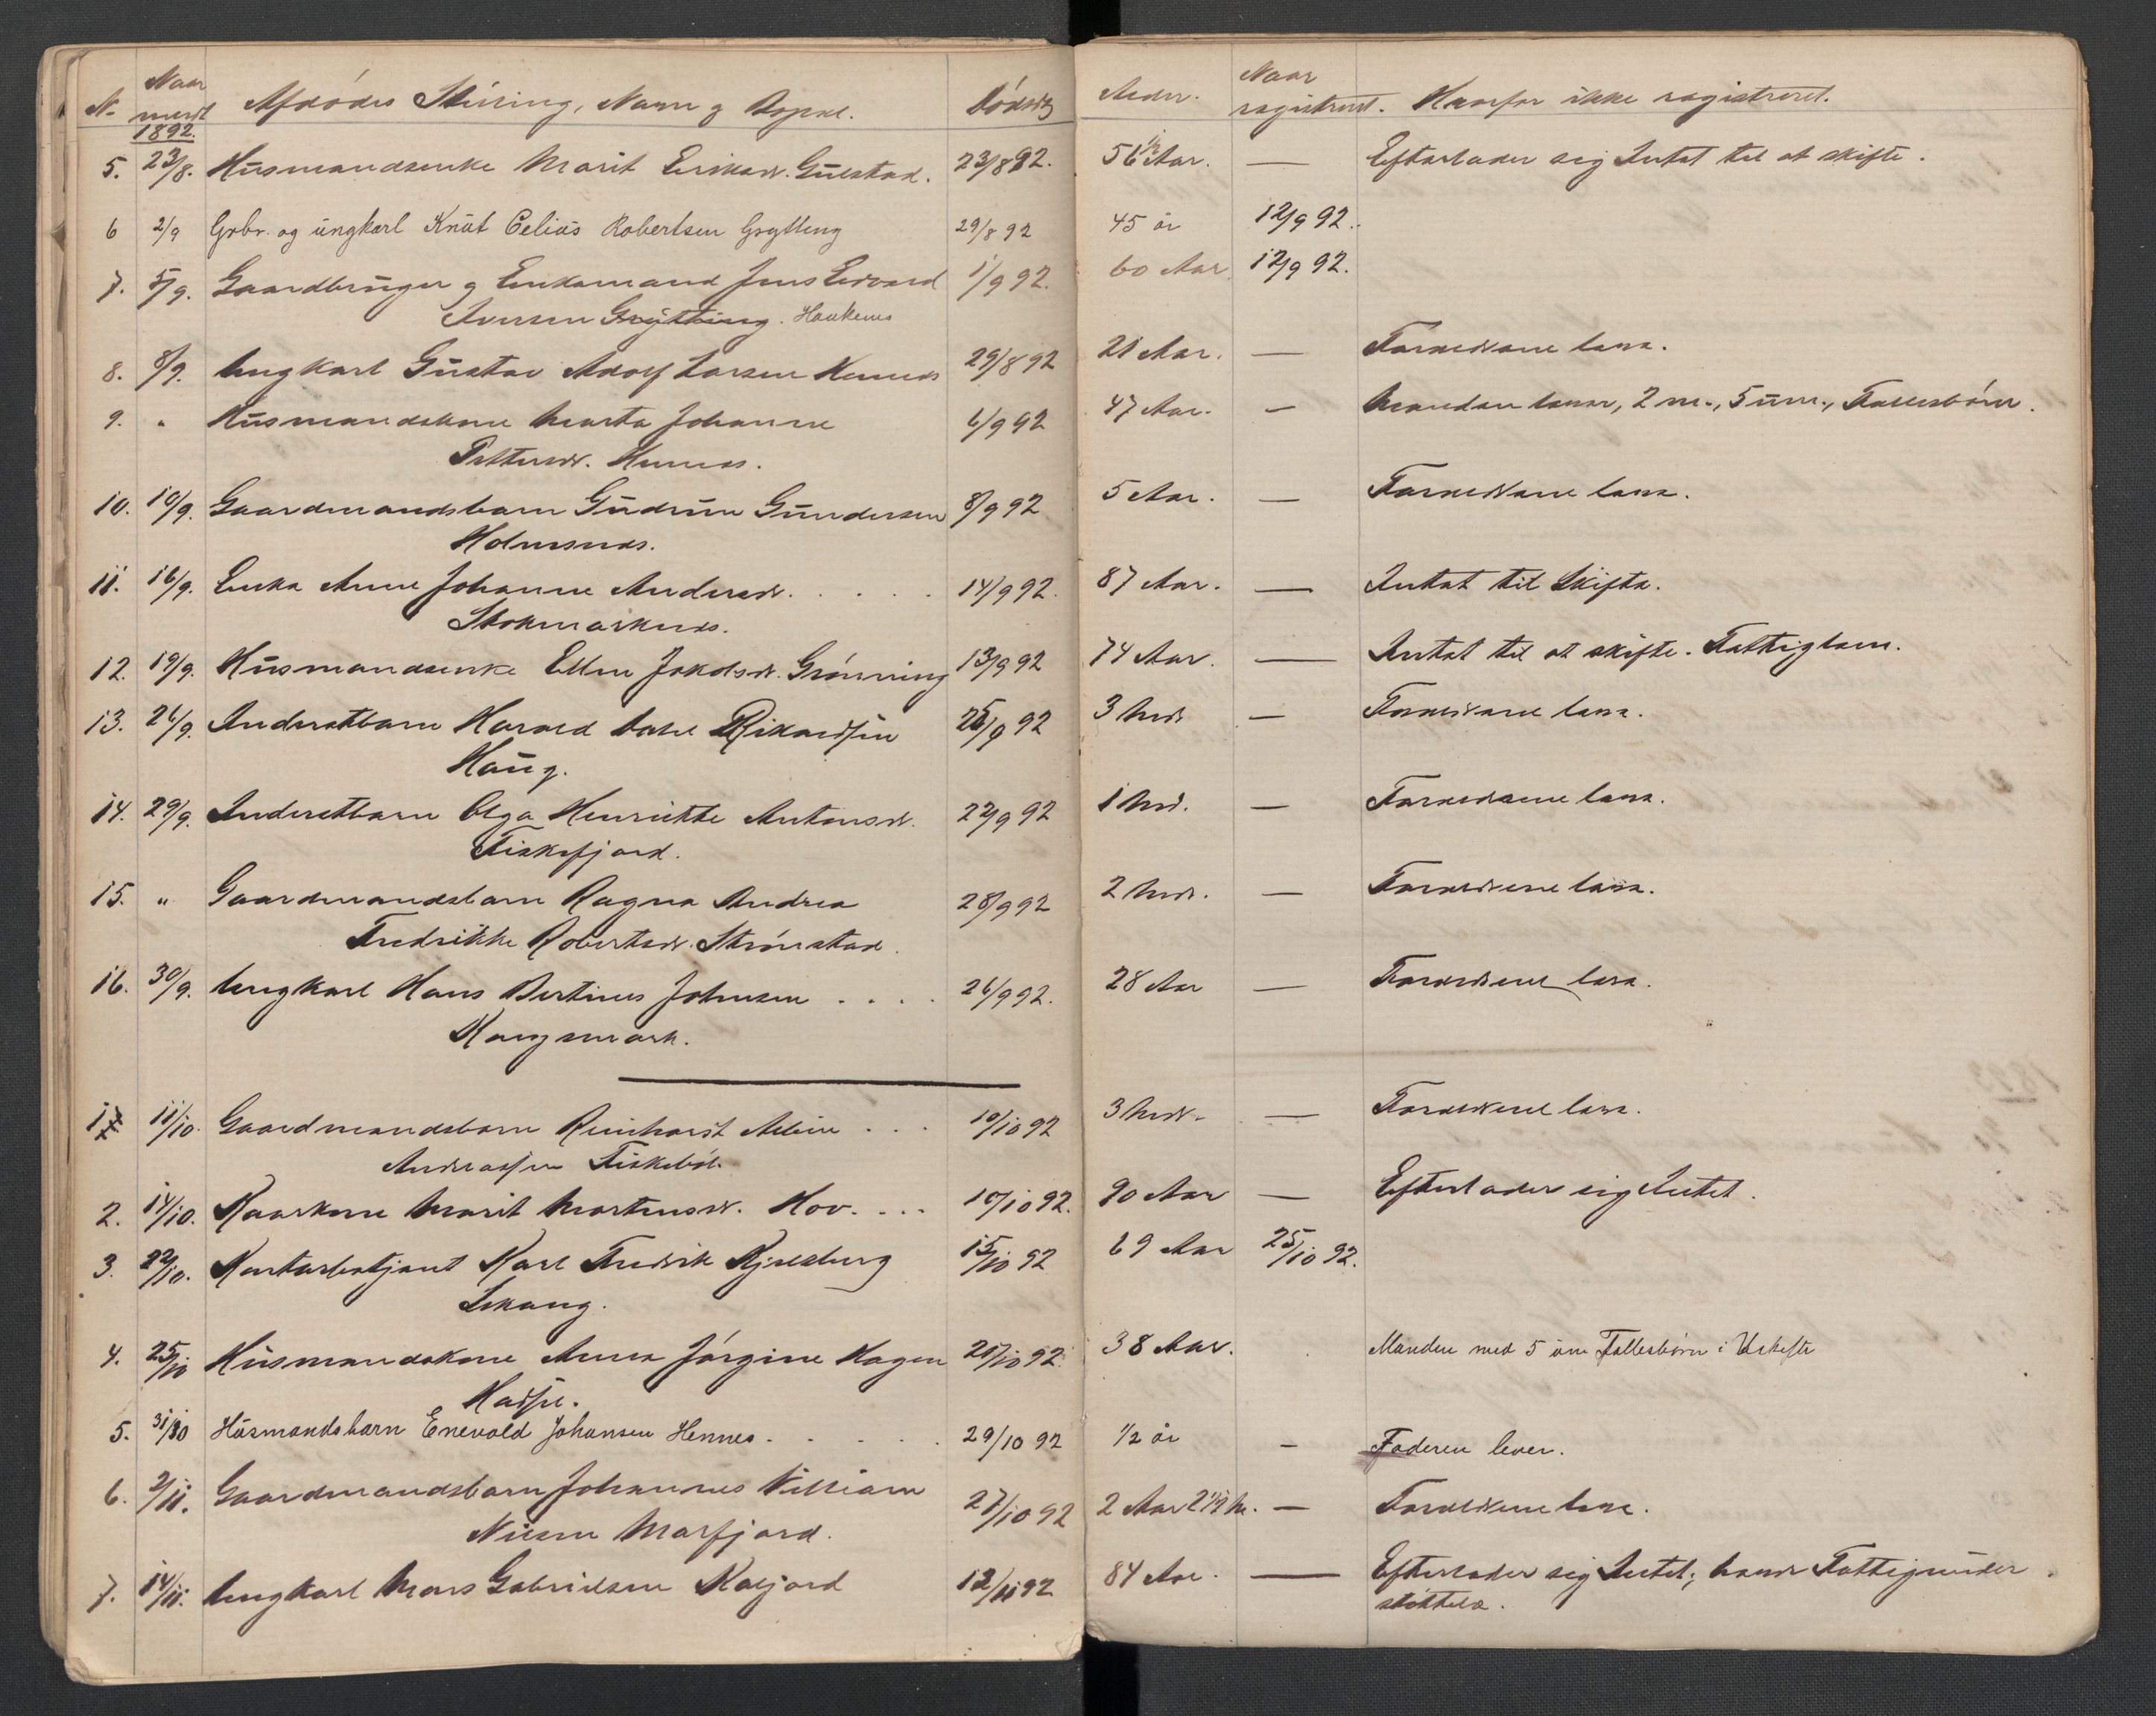 N- Naar meldt Afdødes Stilling, Navn og Bopæl. Dødsdg Alder. Naar registreret. Hvorfor ikke registreret.
1892.
5. 23/8. Husmandsenke Marit Eriksd. Gulstad. 23/8 92. 56 1/2 Aar. — Efterlader sig Intet til at skifte.
6 2/9 Grbr. og ungkarl Knut Celius Robertsen Grytting 29/8 92 45 år 12/9 92.
7. 5/9. Gaardbruger og Enkemand Jens Edvard 1/9 92. 60 Aar 12/9 92.
Iversen Grytting. Haukenes
8. 8/9. Ungkarl Gustav Adolf Larsen Hennes 29/8 92 21 Aar. — Forældrene leve.
9. " Husmandskone Marta Johanne 6/9 92 47 Aar. — Manden lever, 2 m., 5 um., Fællesbørn.
Pettersd. Hennes.
10. 10/9. Gaardmandsbarn Gudrun Gundersen 8/9 92 5 Aar. — Forældrene leve.
Holmsnes.
11. 16/9. Enke Anne Johanne Andersd. . . . . 14/9 92. 87 Aar. — Intet til Skifte.
Stokmarknes.
12. 19/9. Husmandsenke Ellen Jakobsd. Grønning 13/9 92 74 Aar. — Intet til at skifte. Fattiglem.
13. 26/9. Inderstbarn Harald Dahl Rikardsen 25/9 92 3 Md. — Forældrene leve.
Haug.
14. 29/9. Inderstbarn Olga Henriette Antonsd. 22/9 92 1 Md. — Forældrene leve.
Fiskefjord.
15. " Gaardmandsbarn Ragna Andrea 28/9 92 2 Md. — Forældrene leve.
Fredrikke Robertsd. Strønstad.
16. 30/9. Ungkarl Hans Bertines Johnsen . . . . 26/9 92. 28 Aar — Forældrene leve.
Kongsmark.
1. 11/10. Gaardmandsbarn Reinhardt Albin . . . 10/10 92 3 Md. — Forældrene leve.
Andreassen Fiskebøl.
2. 14/10. Kaarkone Marit Mortensd. Hov. . . . 10/10 92. 90 Aar — Efterlader sig Intet.
3. 22/10. Kontorbetjent Karl Fredrik Kjelsberg 15/10 92 69 Aar 25/10 92.
Skaug.
4. 25/10 Husmandskone Anna Jørgine Hagen 20/10 92. 38 Aar. Manden med 5 um Fællesbørn i Uskifte
Hadsel.
5. 31/10 Husmandsbarn Enevold Johansen Hennes. . . . . 29/10 92 1/2 år — Faderen lever.
6. 2/11. Gaardmandsbarn Johannes Villiam 27/10 92 2 Aar 2 1/2 M. — Forældrene leve.
Nilsen Marfjord.
7. 14/11. Ungkarl Mons Gabrielsen Kaljord 12/11 92 84 Aar. — Efterlader sig Intet; havde Fattigunder
støttelse.